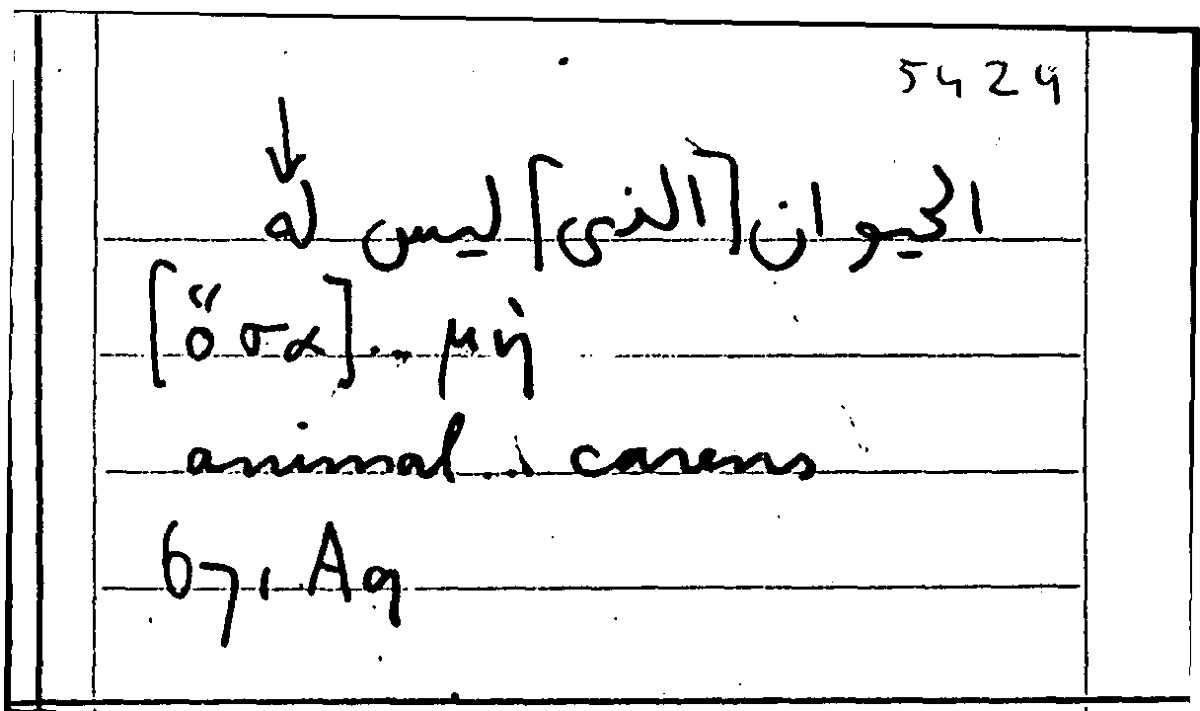 5429
↓
الحيوان [الذى] ليس له
[ὅσα] ... μὴ
animal ... carens
67, A9